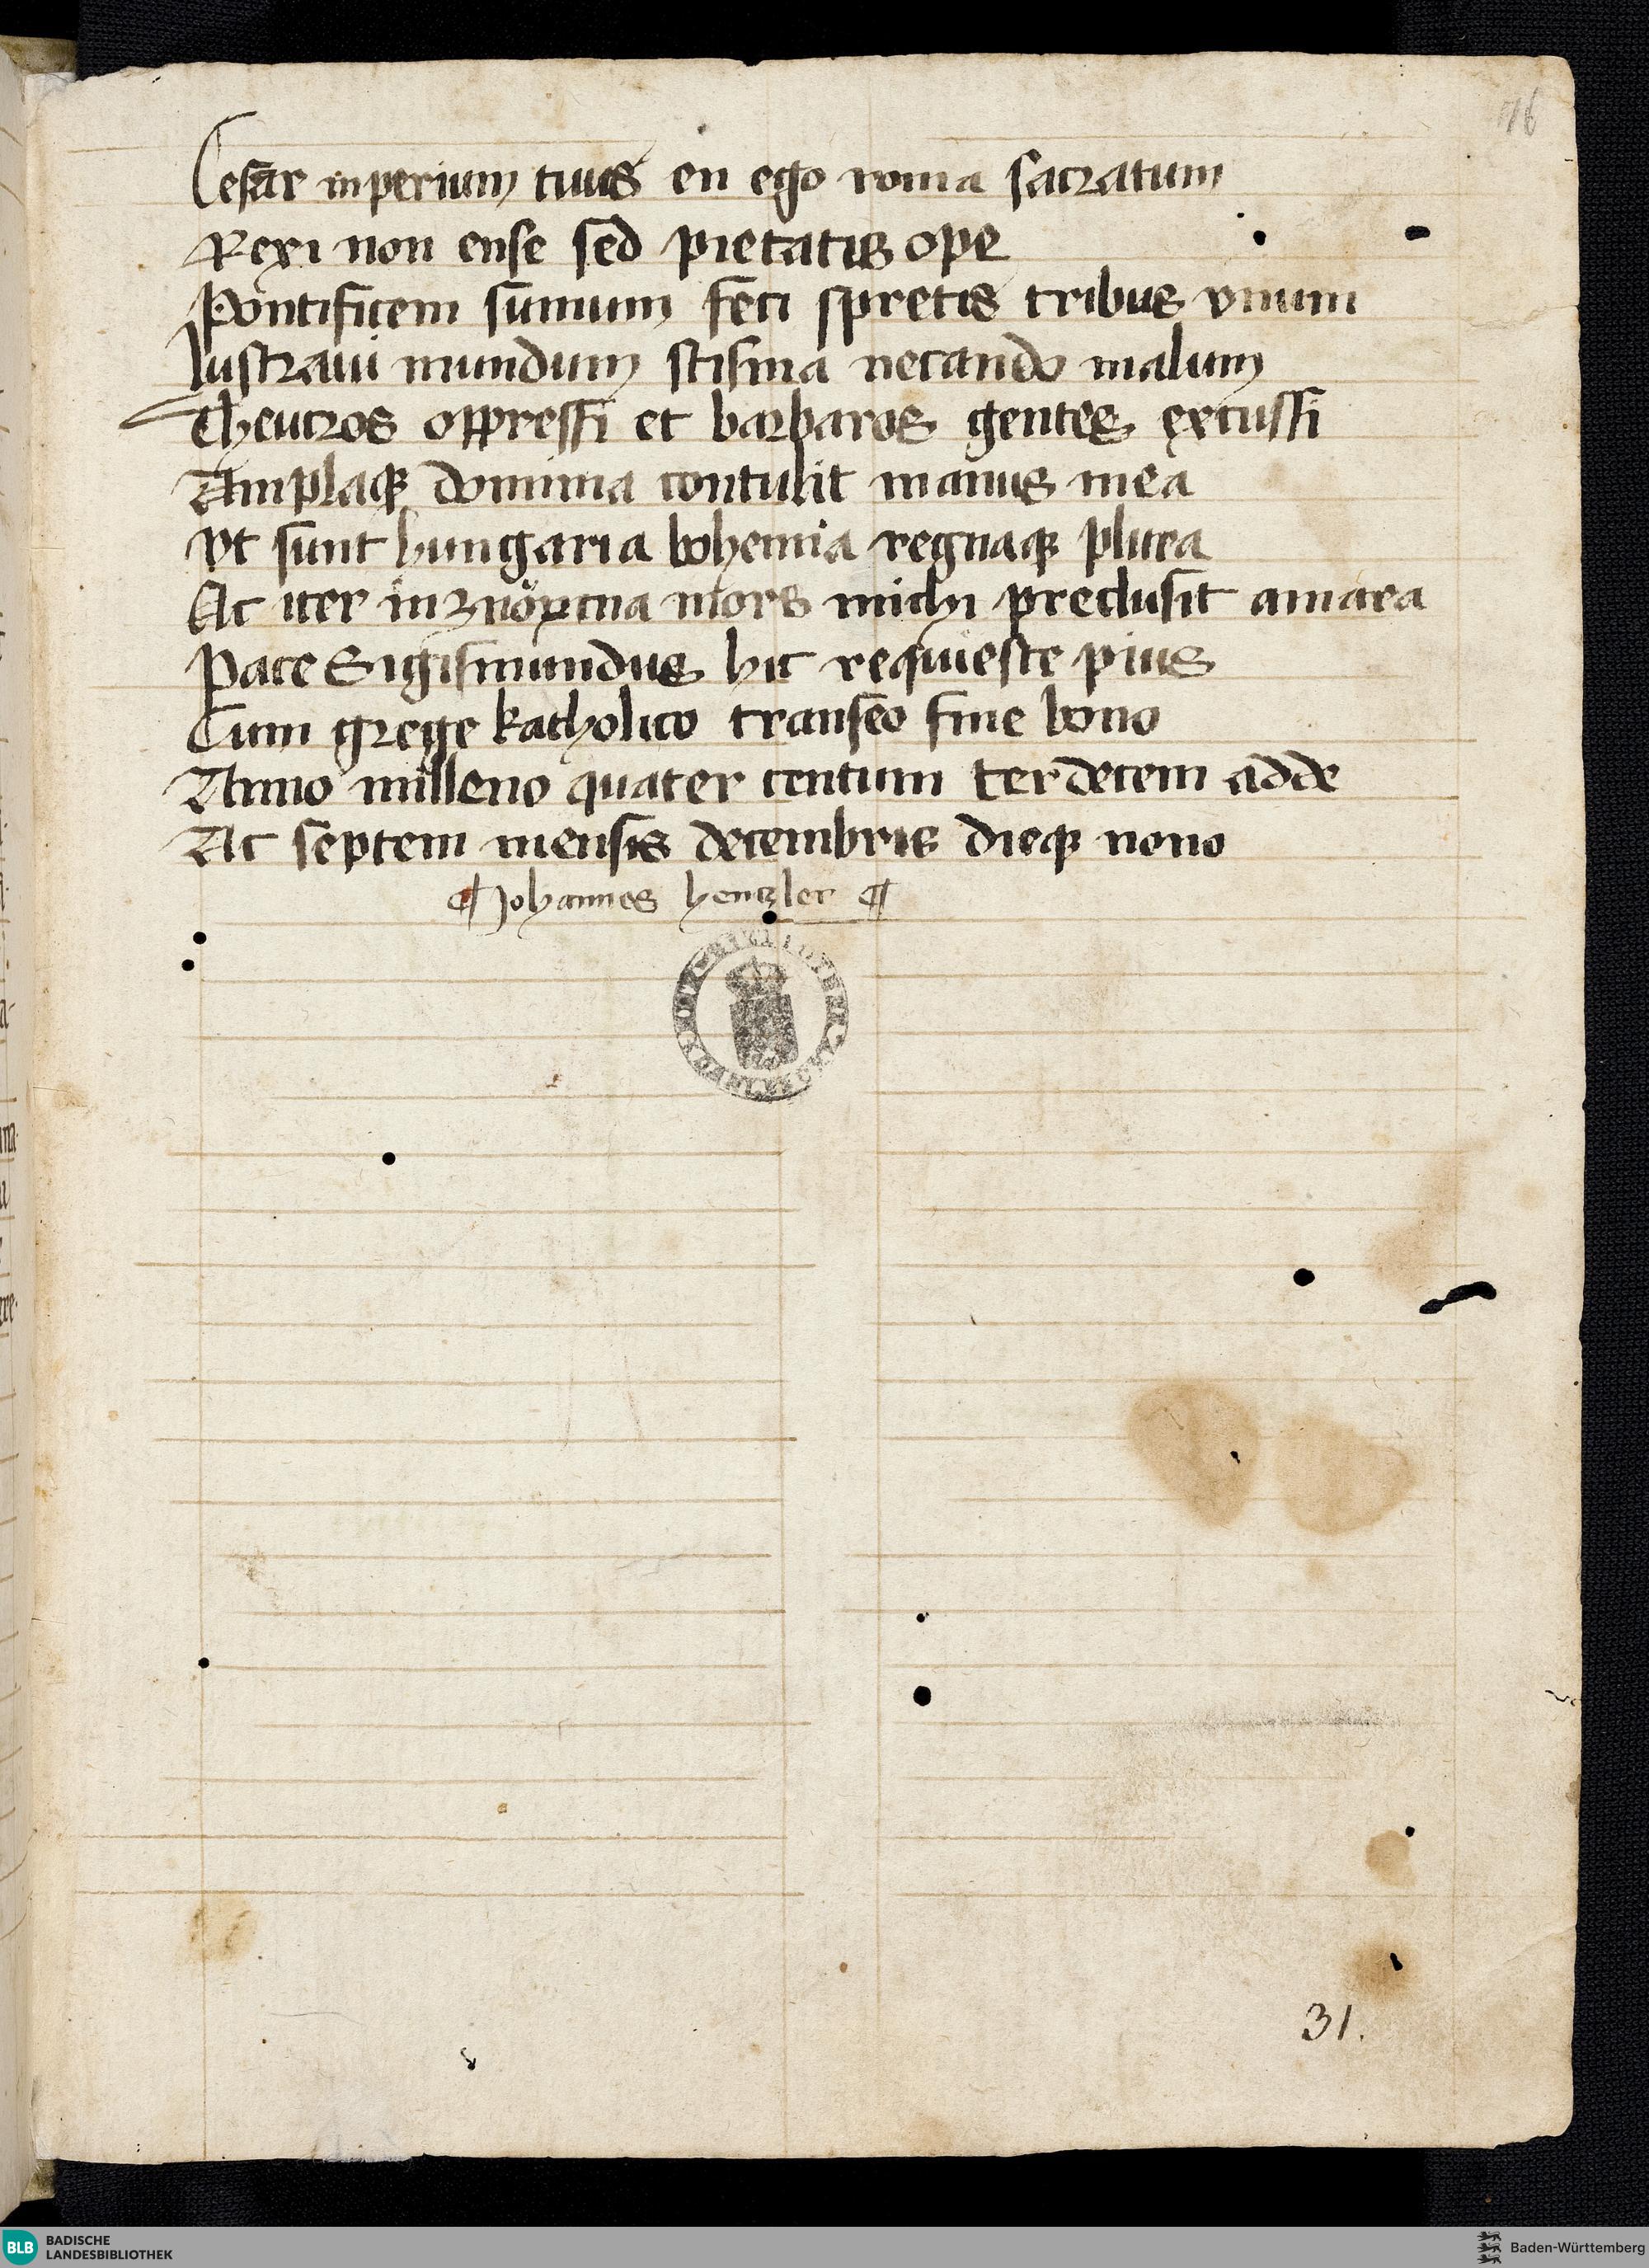 76
Cesar inperium tuus en ego roma sacratum
Rexi non ense sed pietatis ope
Pontificem sūmum feci spretis tribus vnum
Iustraui mundum scisma necando malum
Theucros oppressi et barbaros gentes excussi
Amplaqꝫ dominia contulit manus mea
Vt sunt hungaria bohemia regnaqꝫ plura
Ac iter in znöyma mors michi preclusit amara
Pace Sigismundus hic requiesce pius
Cum grege katholico transeo fine bono
Anno milleno quater centum ter decem adde
Ac septem mensis decembris dieqꝫ nono
¶ Johannes hentzler ¶
31.
BLB BADISCHE
LANDESBIBLIOTHEK
Baden-Württemberg